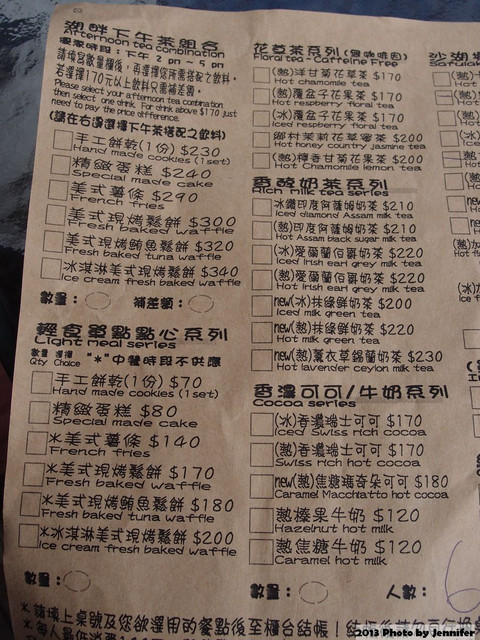 湖畔下午茶組合
Afternoon tea combination
優惠時段：下午 2 pm ~ 5 pm
請填寫數量欄後，再選擇您所需搭配之飲料。
若選擇170元以上飲料只需補差價。
Please select your afternoon tea combination
then select one drink. For drink above $170 just
need to pay the price difference.
(請在右邊選擇下午茶搭配之飲料)
手工餅乾(1份) $230
Hand made cookies (1 set)
精緻蛋糕 $240
Special made cake
美式薯條 $290
French fries
美式現烤鬆餅 $300
Fresh baked waffle
美式現烤鮪魚鬆餅 $320
Fresh baked tuna waffle
冰淇淋美式現烤鬆餅 $340
Ice cream fresh baked waffle
數量： 補差額：
輕食單點點心系列
Light meal series
數量 選擇
Qty Choice "*"中餐時段不供應
手工餅乾(1份) $70
Hand made cookies (1 set)
精緻蛋糕 $80
Special made cake
*美式薯條 $140
French fries
*美式現烤鬆餅 $170
Fresh baked waffle
*美式現烤鮪魚鬆餅 $180
Fresh baked tuna waffle
*冰淇淋美式現烤鬆餅 $200
Ice cream fresh baked waffle
數量：
花草茶系列(無咖啡因)
Floral tea - Caffeine Free
(熱)洋甘菊花草茶 $170
Hot chamomile tea
(熱)覆盆子花果茶 $170
Hot respberry floral tea
(冰)覆盆子花果茶 $170
Iced respberry floral tea
鄉村茉莉花草蜜茶 $200
Hot honey country jasmine tea
(熱)檸香甘菊花果茶 $200
Hot Chamomile lemon tea
香醇奶茶系列
Rich milk tea series
冰鑽印度阿薩姆奶茶 $210
Iced diamond Assam milk tea
(熱)印度阿薩姆奶茶 $210
Hot Assam black sugar milk tea
(冰)愛爾蘭伯爵奶茶 $220
Iced Irish earl grey milk tea
(熱)愛爾蘭伯爵奶茶 $220
Hot Irish earl grey milk tea
new(冰)抹綠鮮奶茶 $200
Iced milk green tea
new(熱)抹綠鮮奶茶 $220
Hot milk green tea
new(熱)薰衣草錫蘭奶茶 $230
Hot lavender ceylon milk tea
香濃可可/牛奶系列
Cocoa series
(冰)香濃瑞士可可 $170
Iced Swiss rich cocoa
(熱)香濃瑞士可可 $170
Swiss rich hot cocoa
new(熱)焦糖瑪奇朵可可 $180
Caramel Macchiatto hot cocoa
熱榛果牛奶 $120
Hazelnut hot milk
熱焦糖牛奶 $120
Caramel hot milk
數量： 人數： 6
*請填上桌號及您欲選用的餐點後至櫃台結帳！
*每人最低消費
©2013 Photo by Jennifer